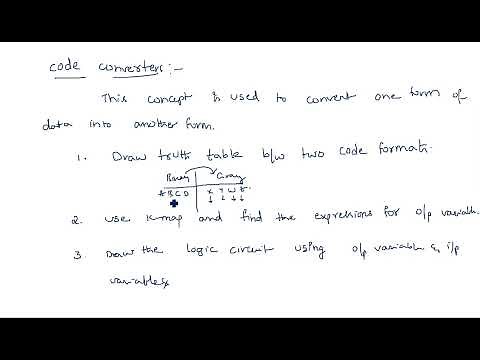 code converters:-
This concept is used to convert one form of
data into another form.
1. Draw truth table b/w two code formats.
Binary Gray
A B C D X Y W Z
2. use K-map and find the expressions for o/p variable.
3. Draw the logic circuit using o/p variable & i/p
variables